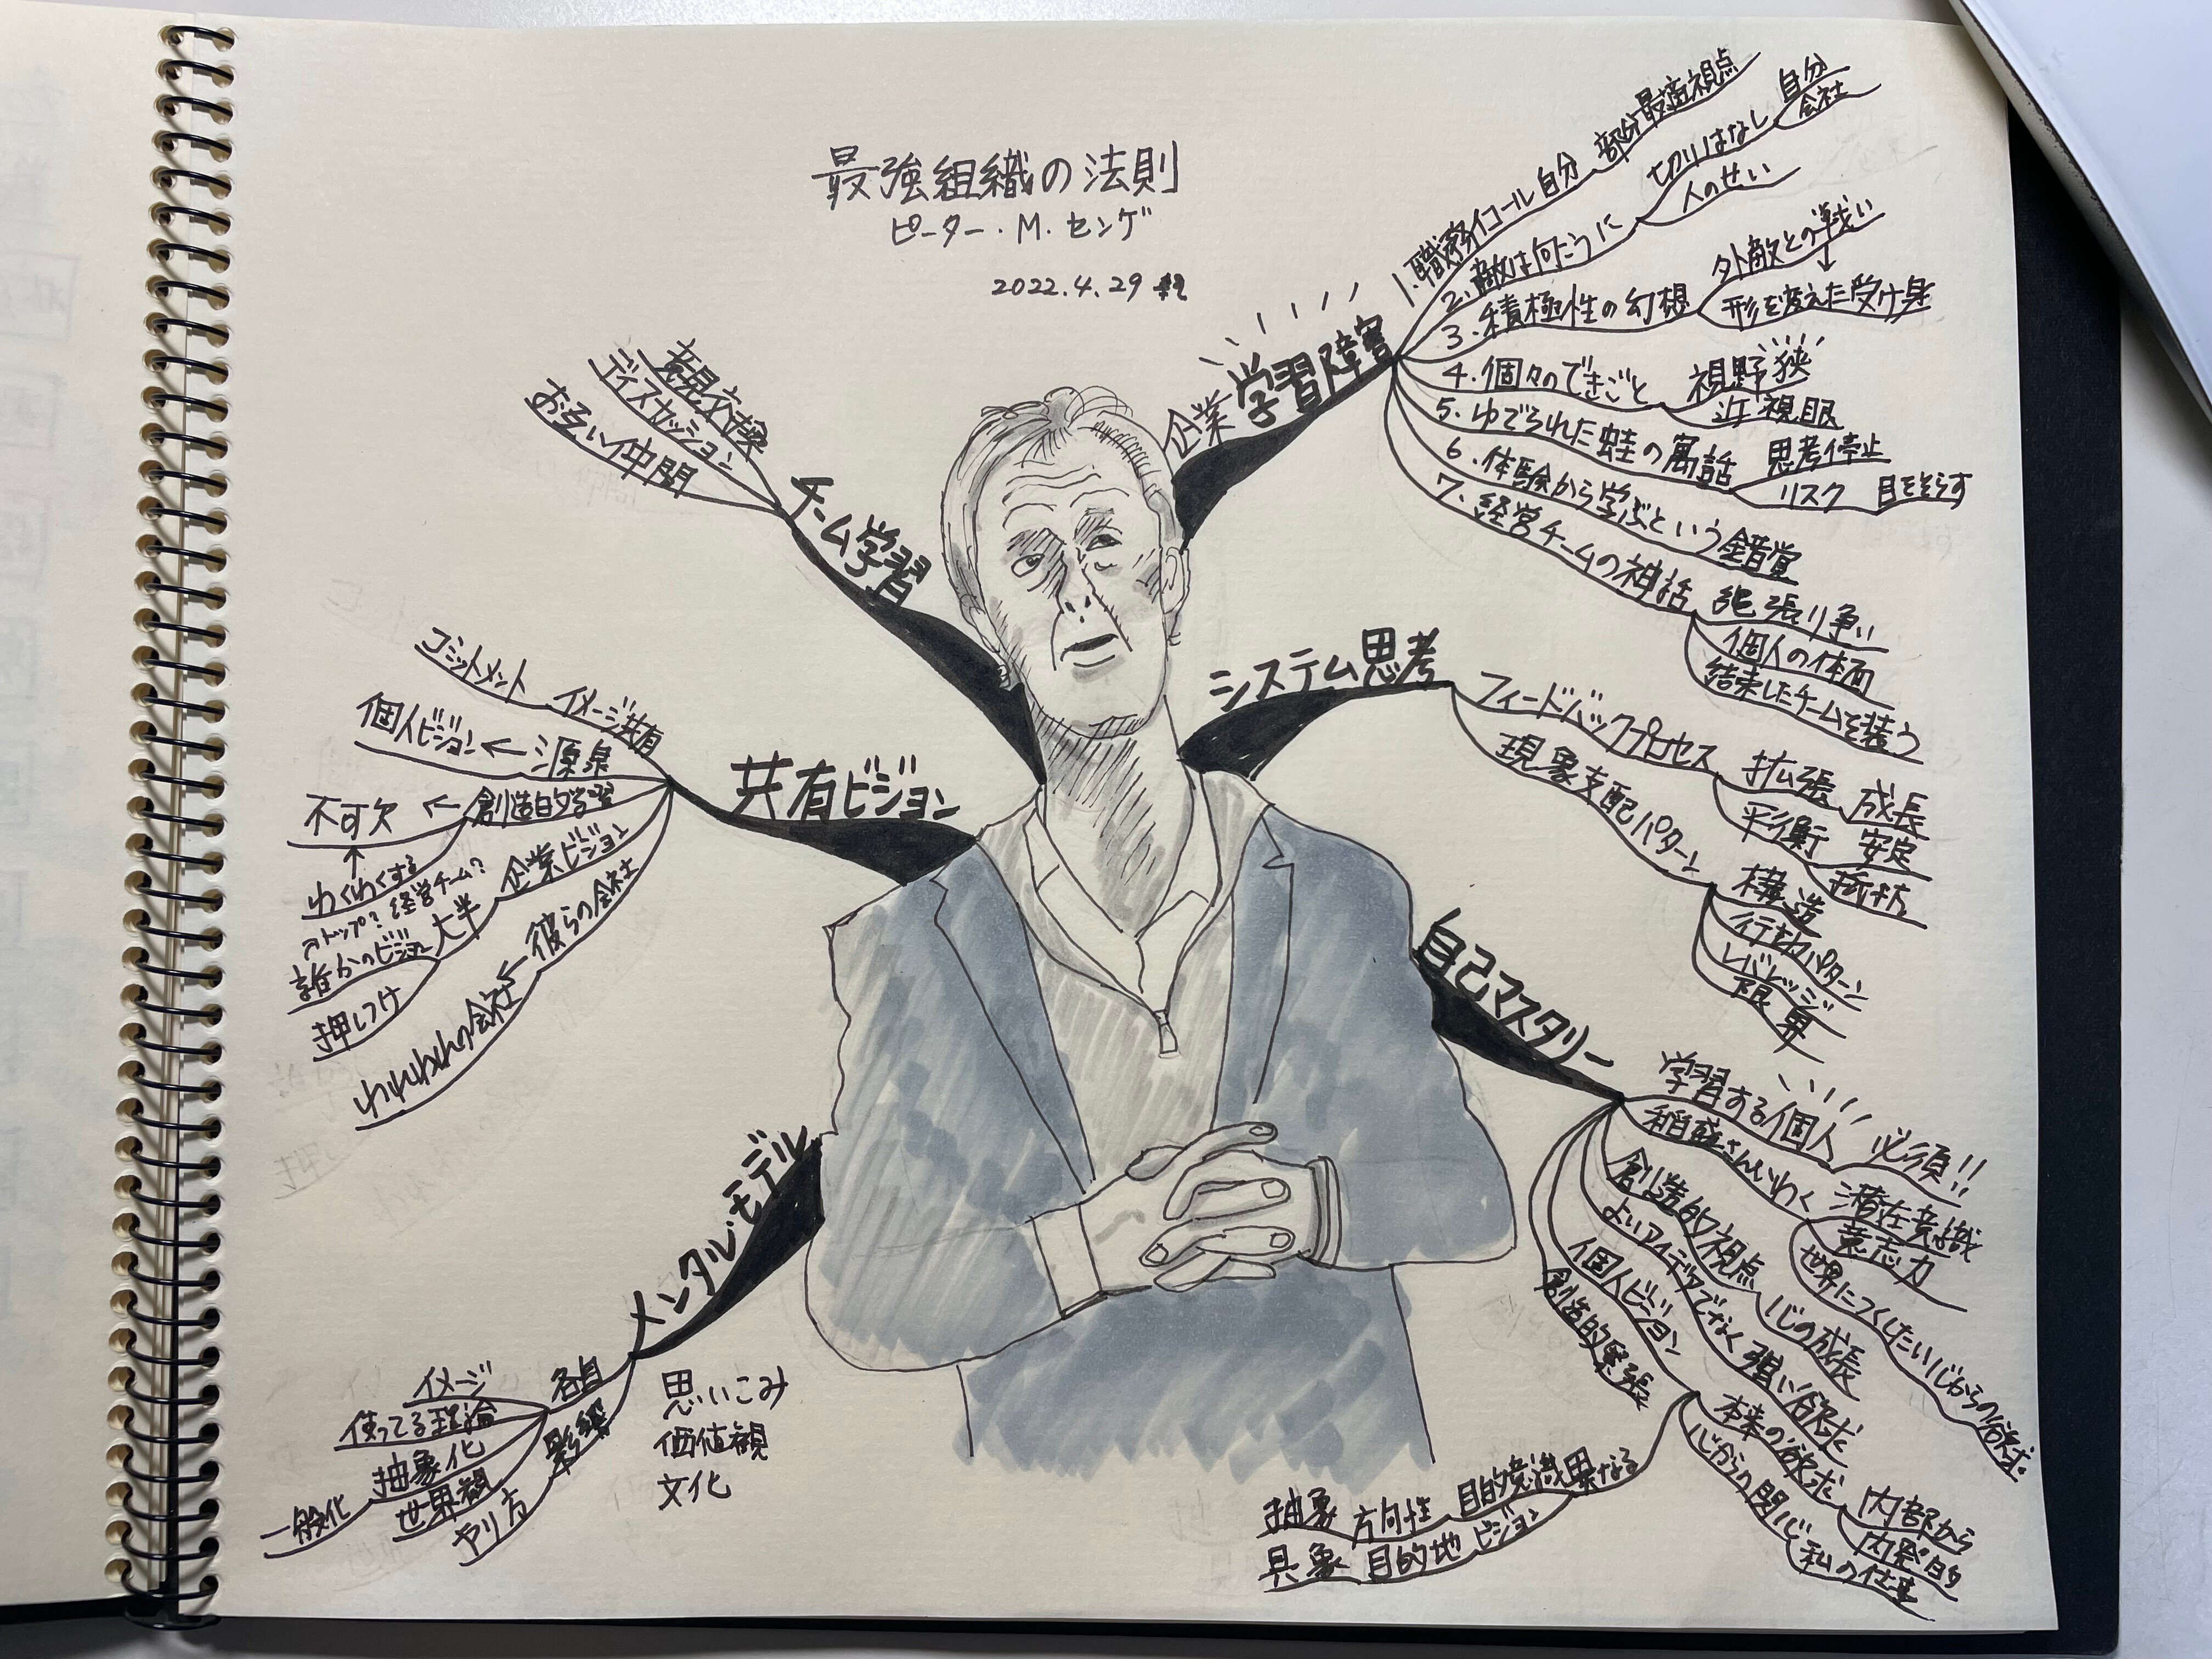 最強組織の法則
ピーター・M・センゲ
2022.4.29
企業学習障害
1.職務イコール自分 部分最適視点
2.敵は向こうに 切りはなし 自分
会社
人のせい
3.積極性の幻想 外敵との戦い
↓
形を変えた受け身
4.個々のできごと 視野狭
近視眼
5.ゆでられた蛙の寓話 思考停止
リスク 目をそらす
6.体験から学ぶという錯覚
7.経営チームの神話 縄張り争い
個人の体面
結束したチームを装う
システム思考
フィードバックプロセス 拡張 成長
平衡 安定
抵抗
現象支配パターン 構造
行動パターン
レバレッジ
限界
自己マスタリー
学習する個人 必須!!
稲盛さんいわく 潜在意識
意志力
世界につくしたい心からの欲求
創造的視点 心の成長
よいアイデアでなく 強い欲求
個人ビジョン 本来の欲求 内部から
内発的
心からの関心 私の仕事
創造的緊張
目的意識異なる
抽象 方向性
具象 目的地 ビジョン
チーム学習
意見交換
ディスカッション
お互い仲間
共有ビジョン
イメージ共有 コミットメント
源泉 ← 個人ビジョン
創造的学習 ← 不可欠
↑
わくわくする
企業ビジョン
大半
トップ? 経営チーム?
誰かのビジョン
押しつけ
彼らの会社
↓
われわれの会社
メンタルモデル
各自
イメージ
使ってる理論
抽象化
一般化
世界観
影響
やり方
思いこみ
価値観
文化